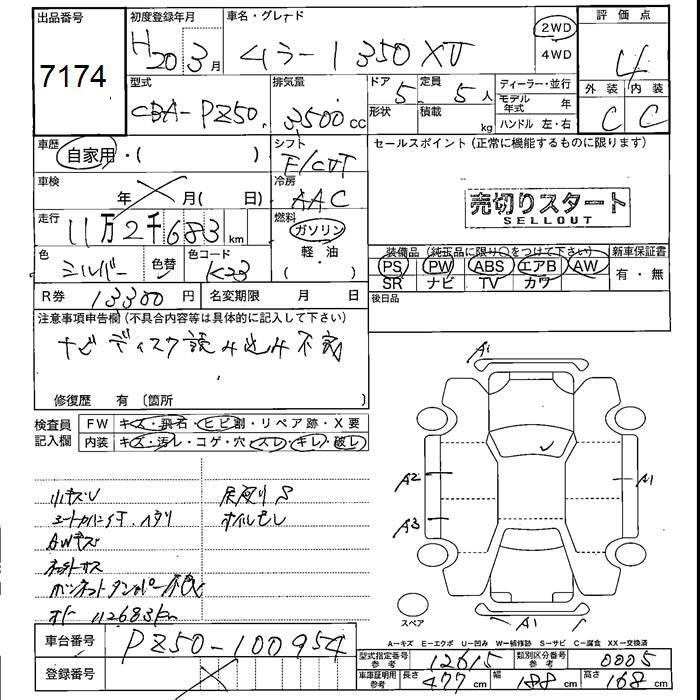 出品番号 初度登録年月 車名・グレード 評価点
7174 H20 3月 ムラーノ 350XV 2WD 4WD 4
型式 排気量 ドア 定員 ディーラー・並行 外装 内装
CBA-PZ50 3500cc 5 5人 モデル年式 年
形状 積載 kg ハンドル 左・右 C C
車歴 シフト セールスポイント(正常に機能するものに限ります)
自家用・( ) F/CVT
車検 年 月( 日) 冷房 AAC
売切りスタート
SELLOUT
走行 11万2千683km 燃料 ガソリン
軽油
( )
色 シルバー 色替 色コード K23
装備品(純正品に限り○をつけて下さい) 新車保証書
PS PW ABS エアB AW 有・無
SR ナビ TV カワ
R券 13300円 名変期限 月 日 後日品
注意事項申告欄(不具合内容等は具体的に記入して下さい)
ナビディスク読み込み不良
修復歴 有〔箇所 〕
検査員記入欄 FW キズ・飛石・ヒビ割・リペア跡・X要
内装 キズ・汚レ・コゲ・穴・スレ・キレ・破レ
小キズU
オイルモレ
AWキズ
112683km
A1
A2 A1
A3
A1
スペア
A-キズ E-エクボ U-凹み W-補修跡 S-サビ C-腐食 XX-交換済
車台番号 PZ50-100954
登録番号
型式指定番号参考 12615 類別区分番号参考 0005
車庫証明用参考 長さ 477cm 幅 188cm 高さ 168cm